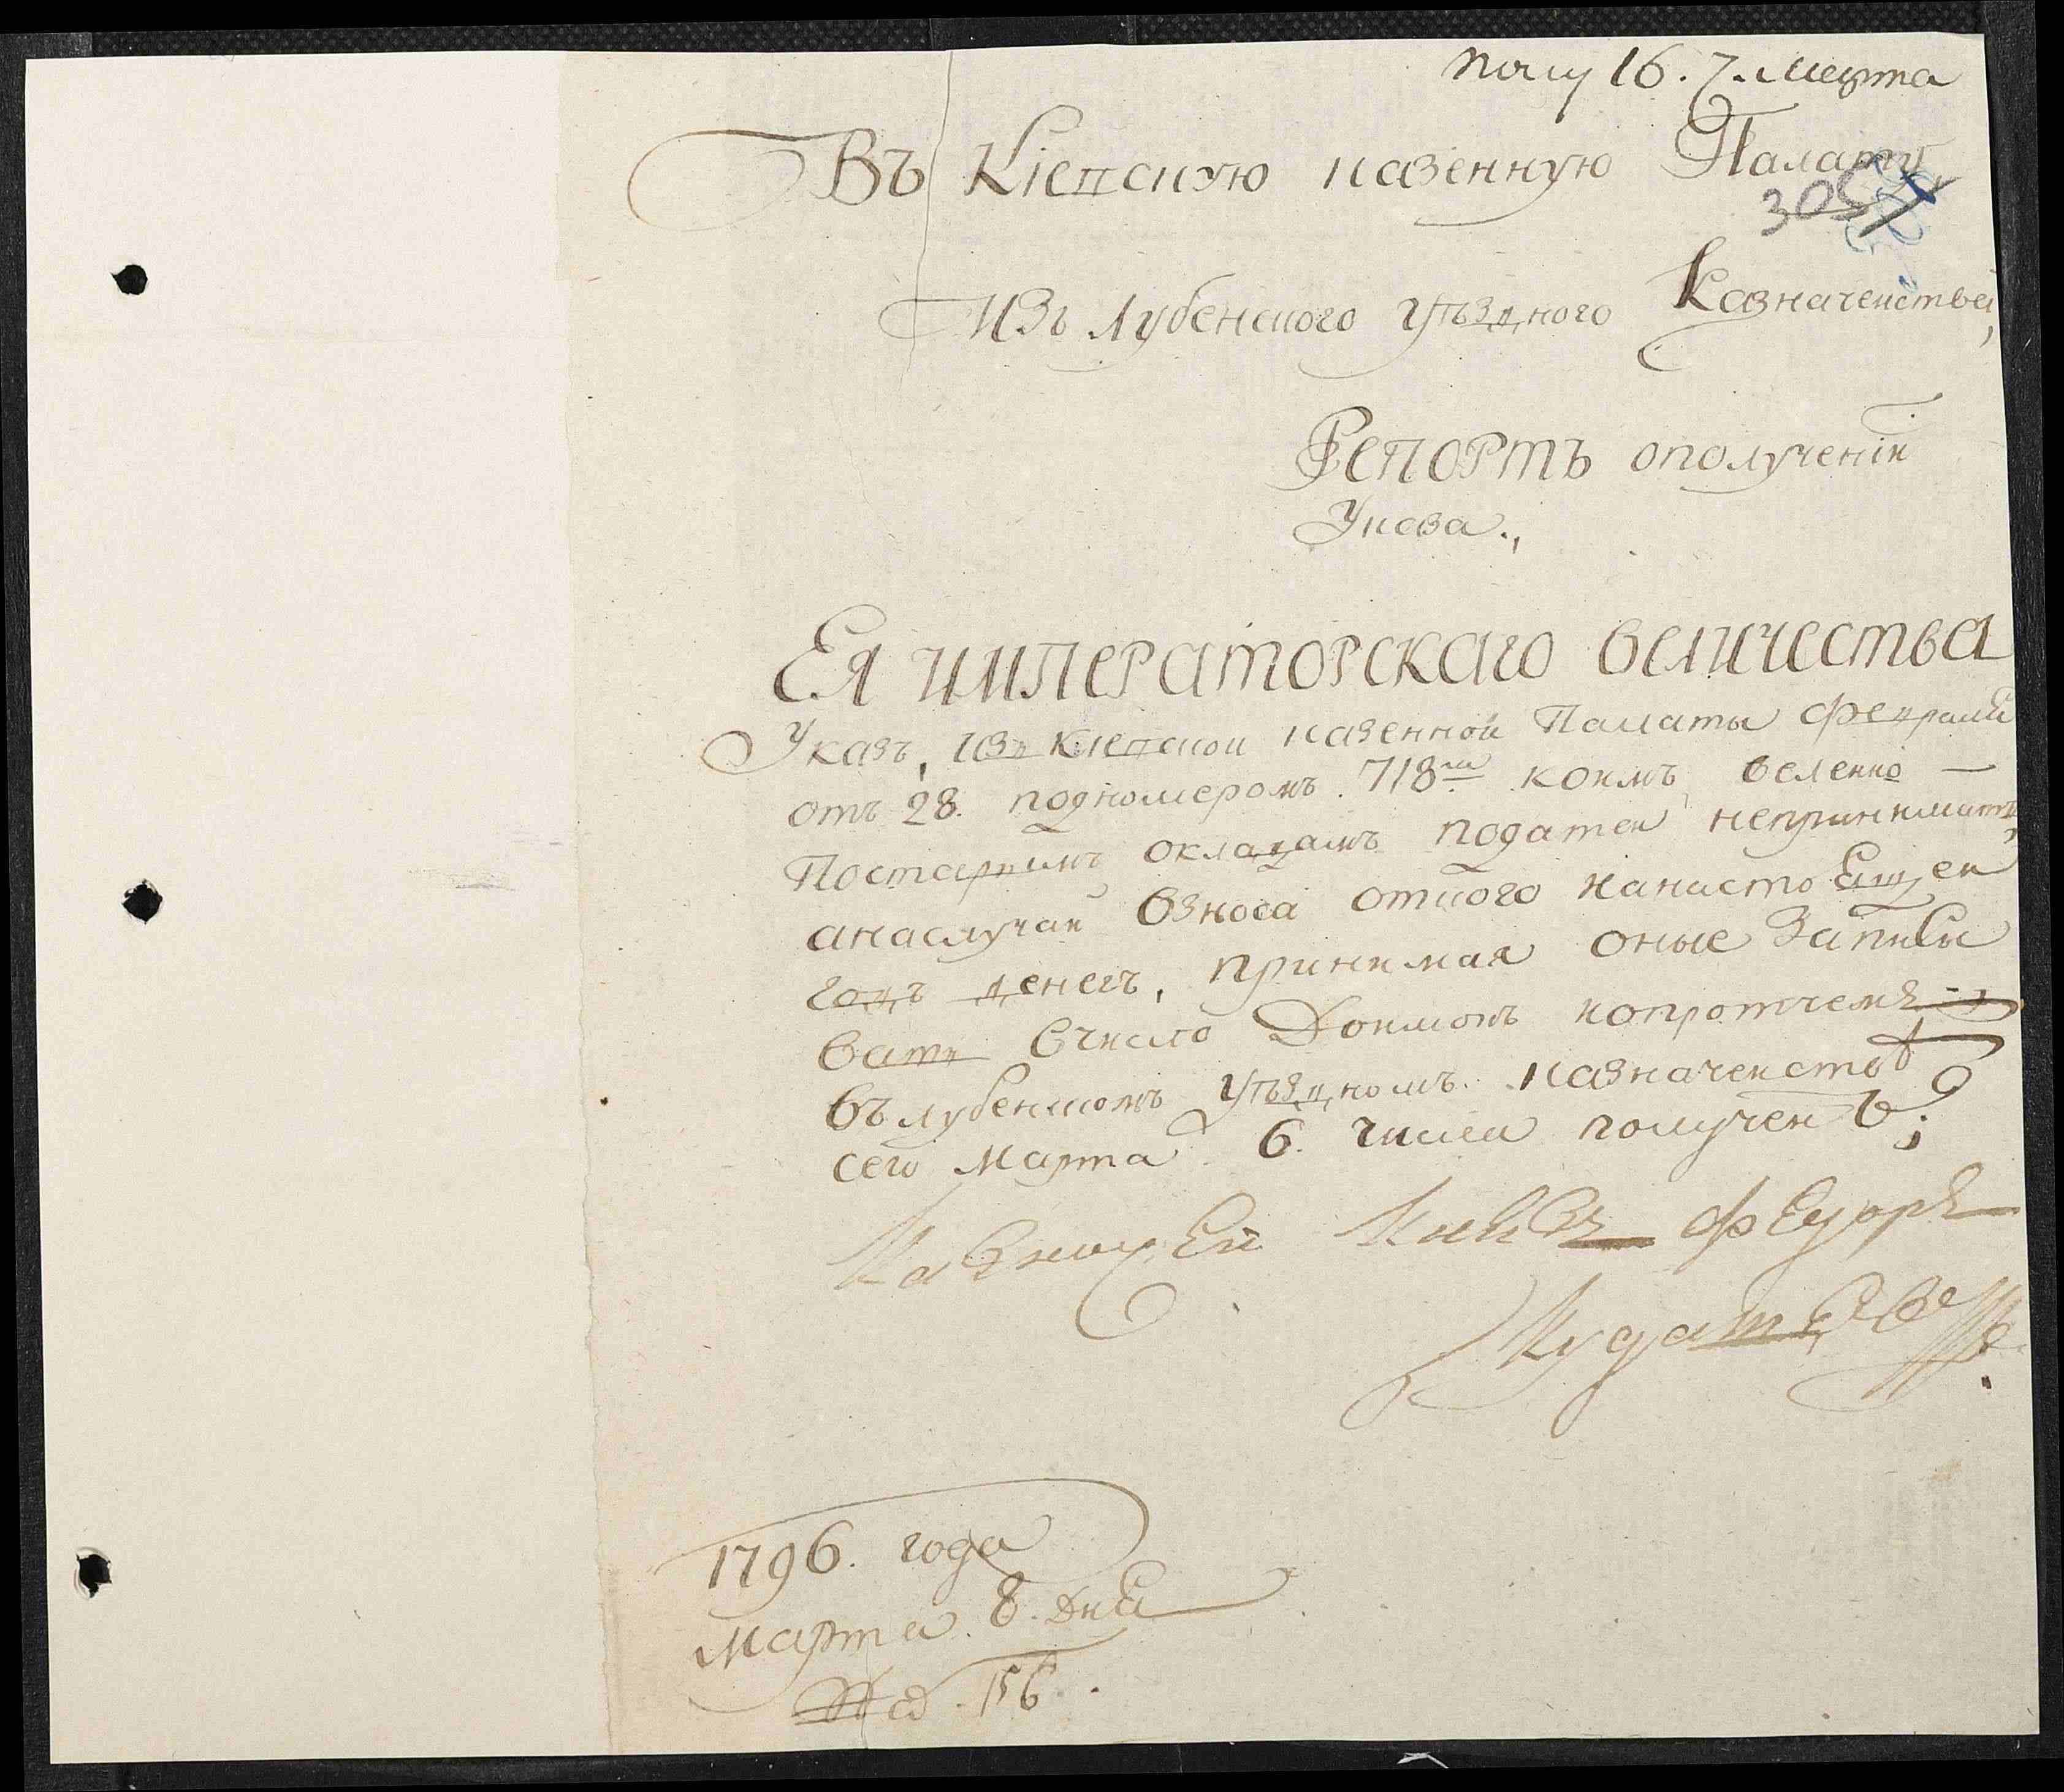 полу 16. 7. Марта
Въ Кіевскую казенную Палату
305
Изъ Лубенского уѣздного Казначейства,
Репортъ ополученіи
Указа.,
Ея императорскаго величества
Указъ, изъ Кіевской казенной Палаты февраля
отъ 28. подномеромъ. 718мъ коимъ веленно —
Постарымъ окладамъ податей непринимать,
анаслучай взноса откого нанастоящей
годъ денегъ, принимая оные Записы
вать вчисло Доимокъ копротчемъ
въ лубенскомъ уѣздномъ казначействѣ
сего Марта 6. числа полученъ;
Казначей Князь Федоръ
Кудашевъ
1796. года
Марта. 8. дня
№ 156.